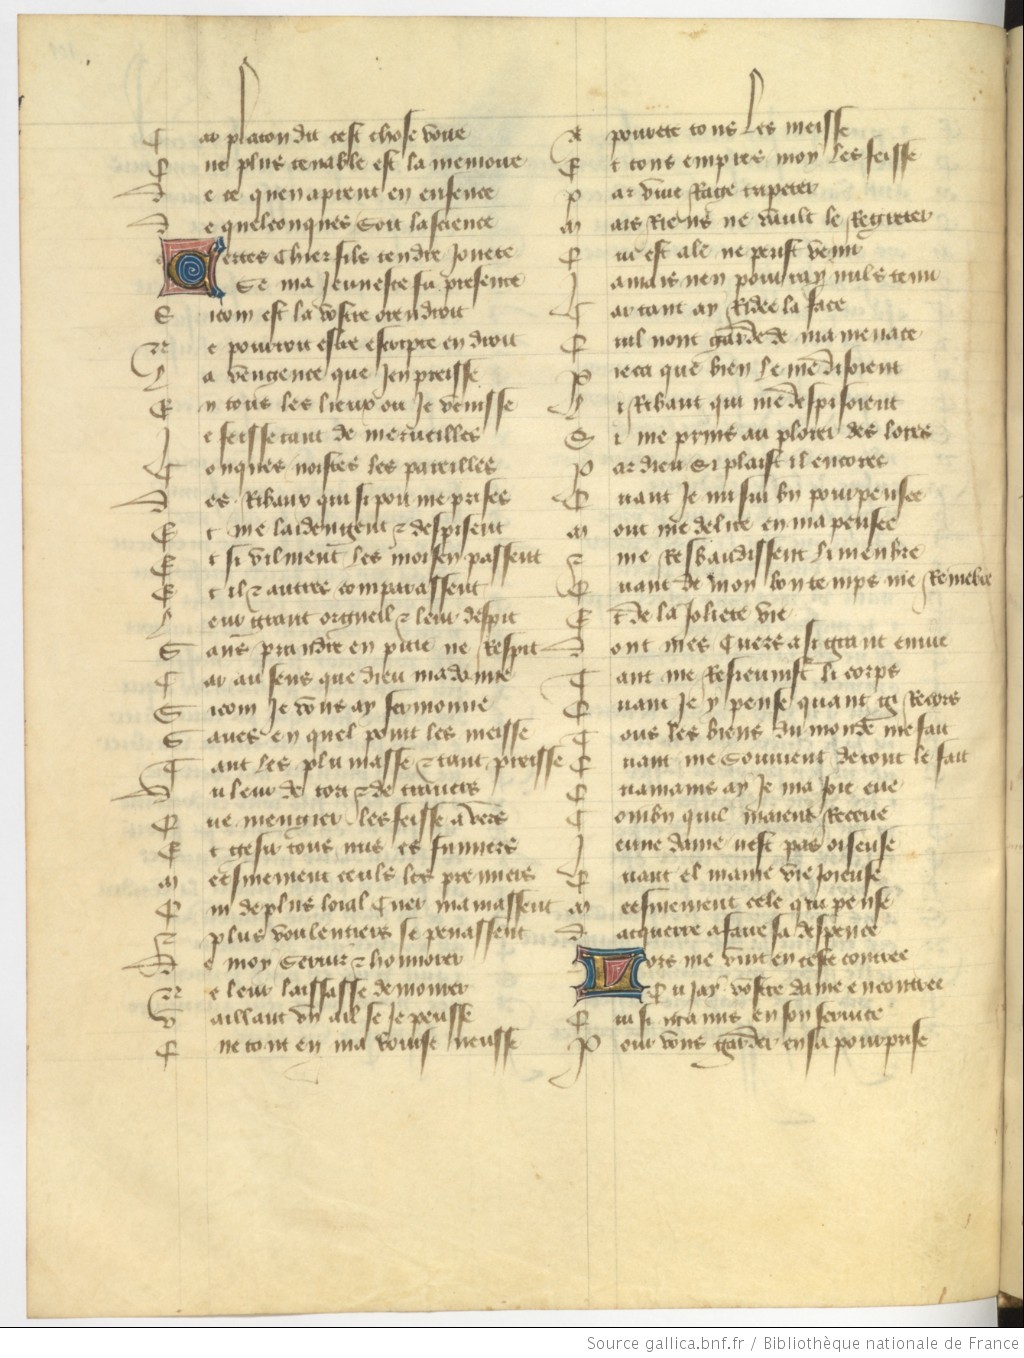 Car platon dit cest chose voire
Que plus tenable est la memoire
De ce quen aprent en enfence
De quelconques soit la science
Certes chier fils tendre jovete
Se ma jeunesce fu presente
Sicom est la vostre orendroit
Ne pourroit estre escripte en droit
La vengence que jen preisse
En tous les lieux ou je venisse
Je feisse tant de merveilles
Conques noistes les pareilles
Des Ribaux qui si pou me prises
Et me laidengent et despisent
Et si vilment les mois en passent
Et il et autres comparassent
Leur grant orgueil et leur despit
Sans prandre en pitie ne Respit
Car au sens que dieu ma donne
Sicom je vous ay sermonne
Saves en quel point les meisse
Tant les plumasse et tant preisse
Du leur de tort et de travers
Que mengier les feisse a vers
Et gesir tous nus es fumiers
Meesmement ceuls les premiers
Qui de plus loial Cuer mamassent
Et plus voulentiers se penassent
De moy Servir et honnorer
Ne leur laissasse demourer
Vaillant un ail se je peusse
Que tout en ma bourse neusse
A povrete tous les meisse
Et tous empres moy les feisse
Par vive Rage tripeter
Mais Riens ne vault le Regreter
Qui est ale ne peust venir
Jamais nen pourray nuls tenir
Car tant ay Ridee la face
Quil nont garde de ma menace
Pieca que bien le me disoient
Li Ribaut qui me despisoient
Si me prins au plorer des lores
Par dieu Si plaist il encores
Quant je mi sui bn pourpensee
Mout me delite en ma pensee
Et me Resbaudissent li menbre
Quant de mon bon temps me Remenbre
Et de la joliete vie
Dont mes Cuers a si grant envie
Tant me Resjeunist li corps
Quant je y pense quant gi Recors
Tous les biens du monde me fait
Quant me Souvient de tout le fait
Quamains ay je ma joie eue
Combn quil maient Receue
Jeune dame nest pas oiseuse
Quant el maine vie joieuse
Meesmement cele qui pense
Dacquerre a faire sa despence
Lors me vint en ceste contree
Ou jay vostre dame encontree
Qui si ma mis en son service
Pour vous garder en sa pourprise
Source gallica.bnf.fr / Bibliothèque nationale de France